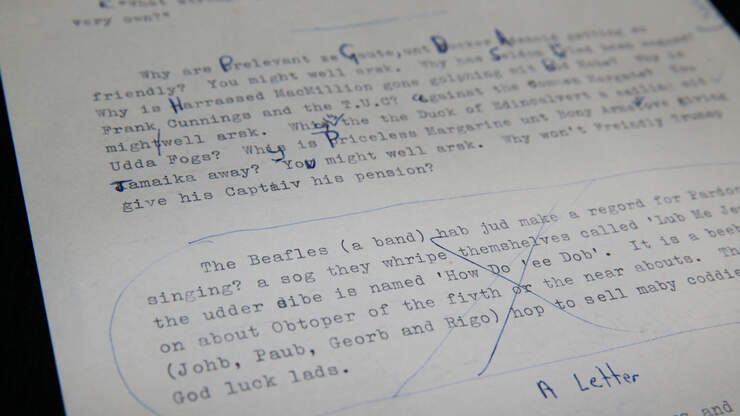 very own?"
Why are Prelevant ze Gaute, unt Docker getting so
friendly? You might well arsk. Why has
Why is Harrassed MacMillion gone golphing mit Hobe? Why is
Frank Cunnings and the T.U.C? against the You
might well arsk. Why the the Duck of Edincalvert a mit
Udda Fogs? Why is Priceless Margarine unt Bony giving
Jamaika away? You might well arsk. Why won't Freindly
give his Captaiv his pension?
The Beafles (a band) hab jud make a regord for Pardon
singing? a sog they whripe themshelves called 'Lub Me Je
the udder dibe is named 'How Do 'ee Dob'. It is a beeb
on about Obtoper of the fivth or the near abouts. Th
(Johb, Paub, Georb and Rigo) hop to sell maby coddie
God luck lads.
A Letter
and